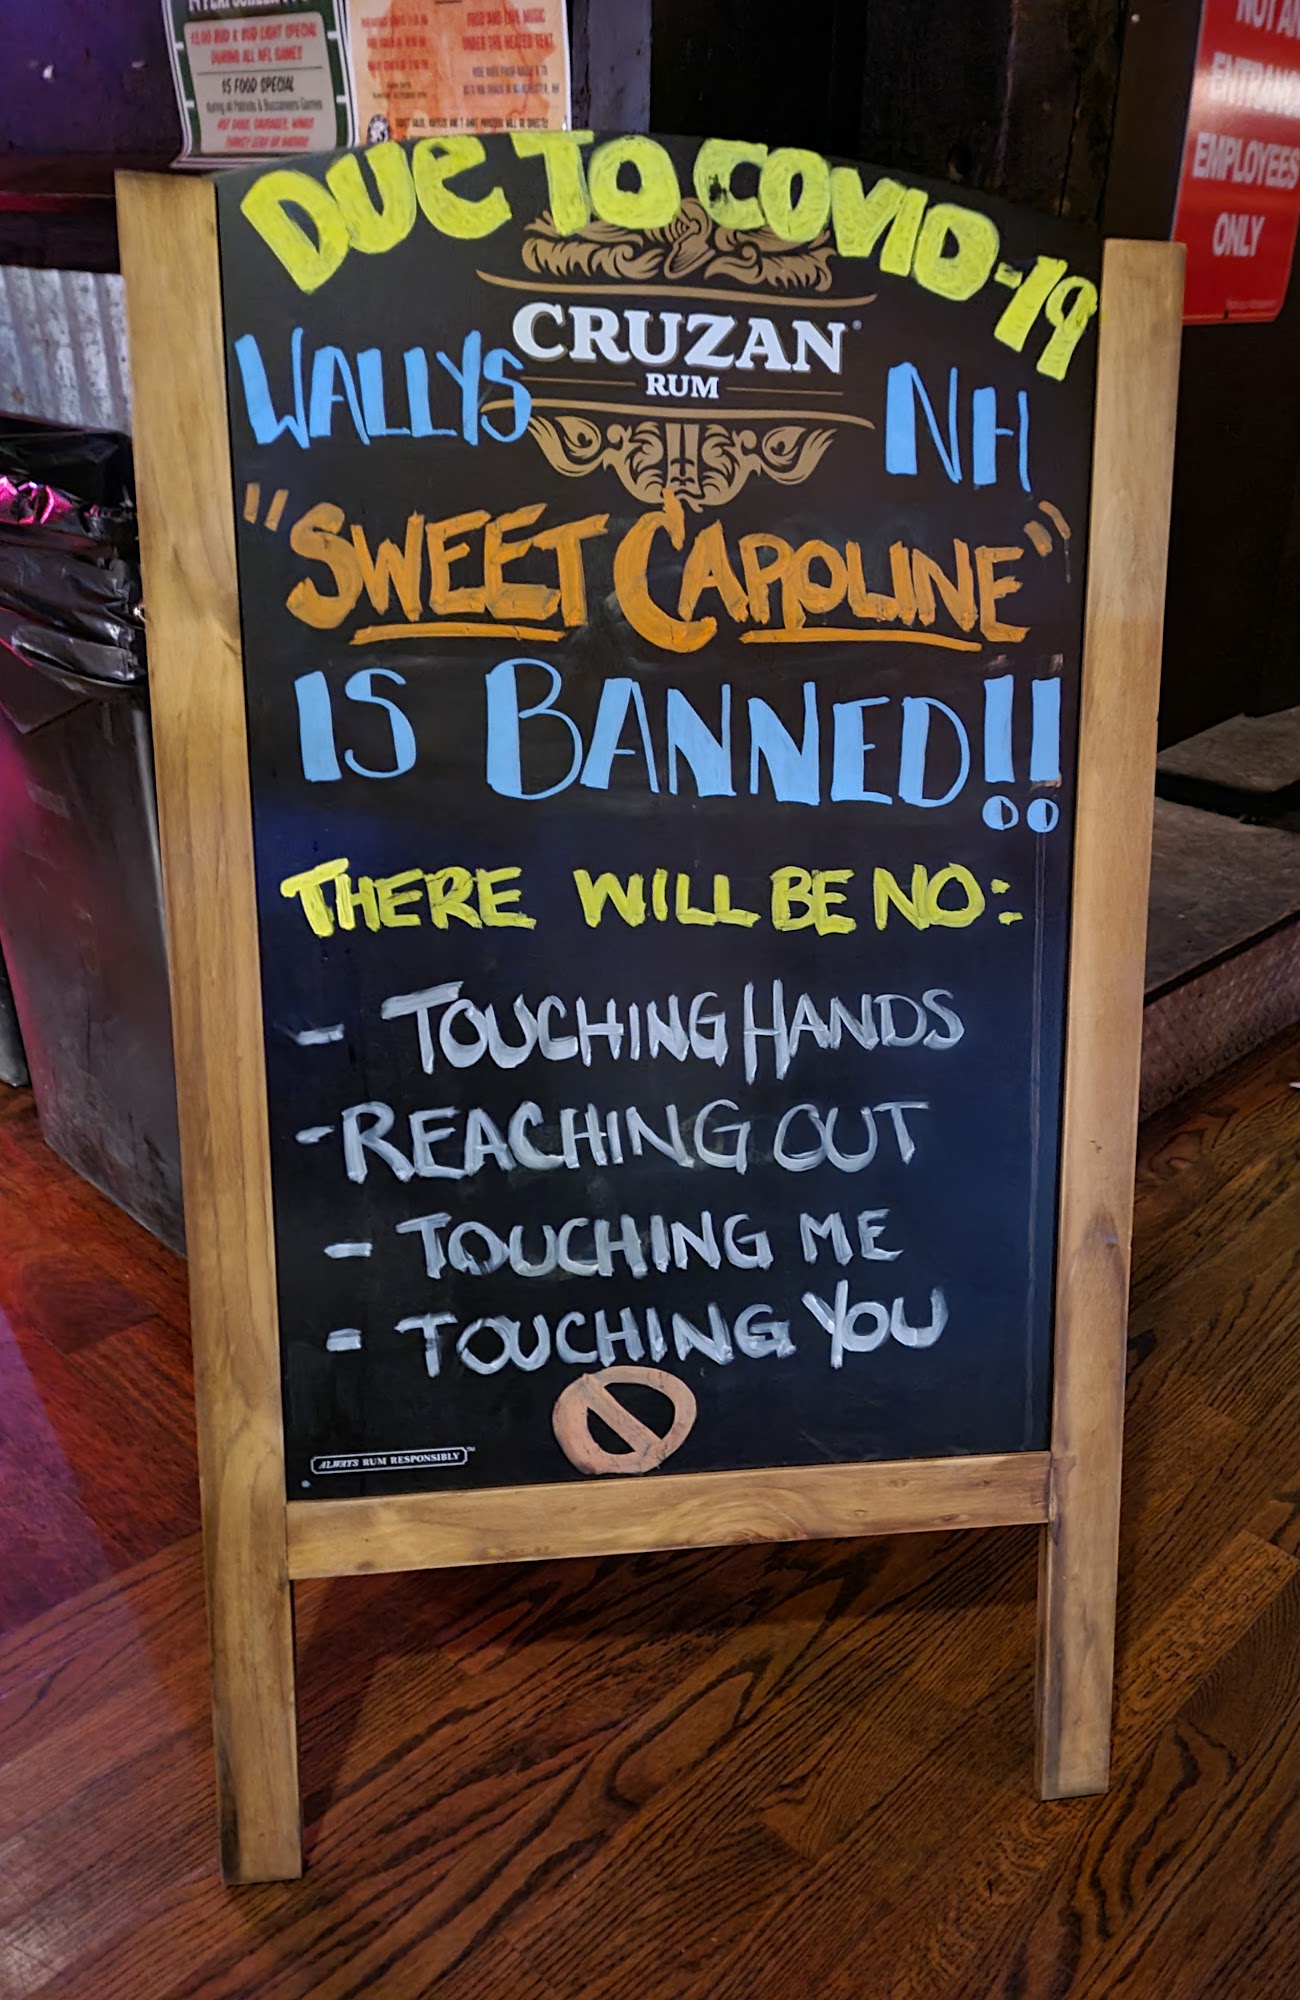 $2.00 BUD & BUD LIGHT SPECIAL
DURING ALL NFL GAMES
$5 FOOD SPECIAL
during all Patriots & Buccaneers Games
HOT DOGS, SAUSAGES, WINGS
FOOD AND LIVE MUSIC
UNDER THE HEATED TENT
NOT AN
ENTRANCE
EMPLOYEES
ONLY
DUE TO COVID-19
CRUZAN®
RUM
WALLYS NH
"SWEET CAROLINE"
IS BANNED!!
THERE WILL BE NO:
- TOUCHING HANDS
- REACHING OUT
- TOUCHING ME
- TOUCHING YOU
ALWAYS RUM RESPONSIBLY™